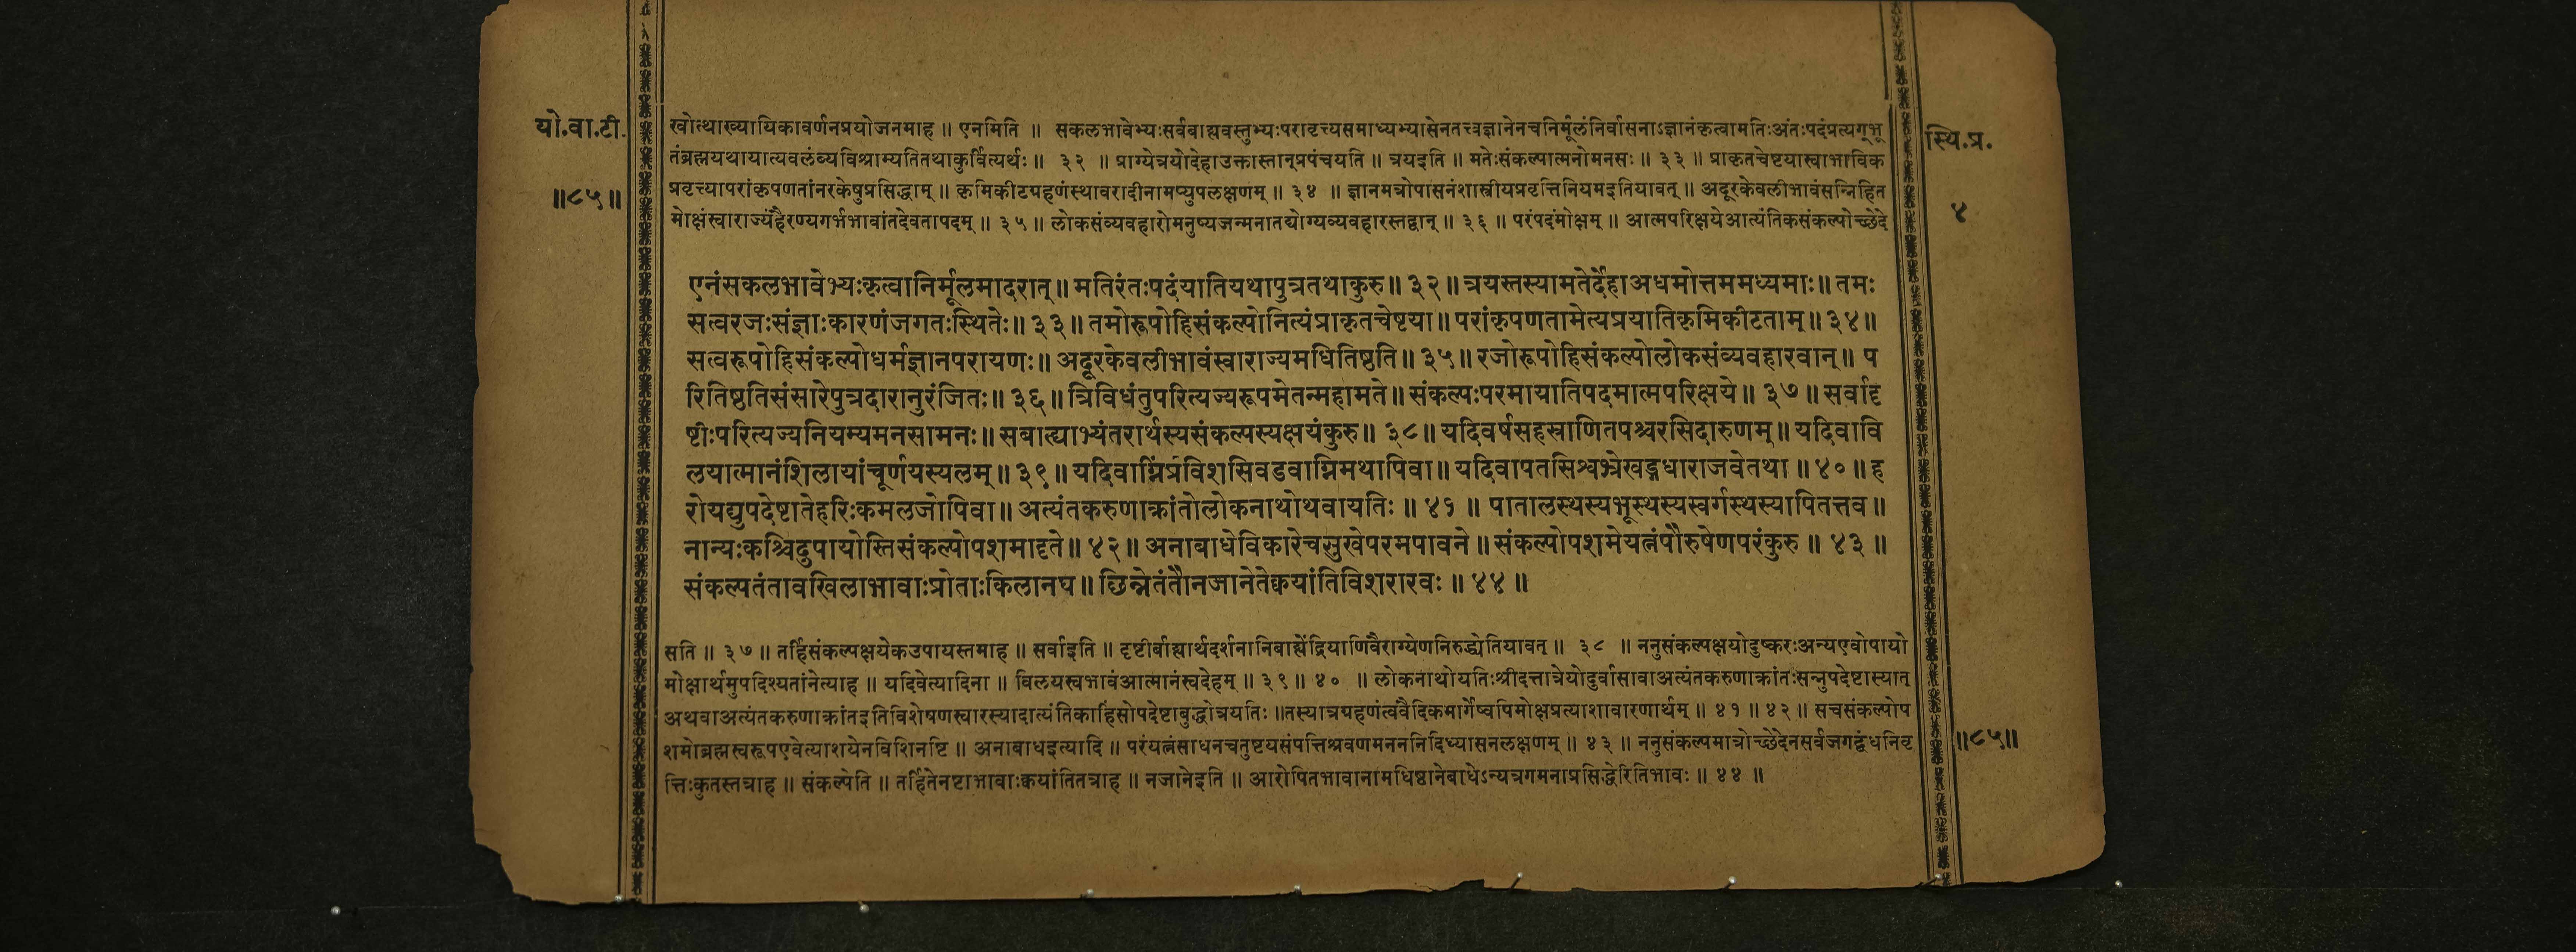 यो.वा.टी.
॥८५॥
खोत्थाख्यायिकावर्णनप्रयोजनमाह ॥ एनमिति ॥ सकलभावेभ्यःसर्वबाह्यवस्तुभ्यःपरावृत्त्यसमाध्यभ्यासेनतत्त्वज्ञानेनचनिर्मूलंनिर्वासनाऽज्ञानंकृत्वामतिःअंतःपदंप्रत्यग्भू
तंब्रह्मयथायात्यवलंब्यविश्राम्यतितथाकुर्वित्यर्थः ॥ ३२ ॥ प्राग्येत्रयोदेहाउक्तास्तान्प्रपंचयति ॥ त्रयइति ॥ मतेःसंकल्पात्मनोमनसः ॥ ३३ ॥ प्राकृतचेष्टयास्वाभाविक
प्रवृत्त्यापरांकृपणतांनरकेषुप्रसिद्धाम् ॥ कृमिकीटग्रहणंस्थावरादीनामप्युपलक्षणम् ॥ ३४ ॥ ज्ञानमत्रोपासनंशास्त्रीयप्रवृत्तिनियमइतियावत् ॥ अदूरकेवलीभावंसन्निहित
मोक्षंस्वाराज्यंहैरण्यगर्भभावांतदेवतापदम् ॥ ३५ ॥ लोकसंव्यवहारोमनुष्यजन्मनातद्योग्यव्यवहारस्तद्वान् ॥ ३६ ॥ परंपदंमोक्षम् ॥ आत्मपरिक्षयेआत्यंतिकसंकल्पोच्छेदे
स्थि.प्र.
४
एनंसकलभावेभ्यःकृत्वानिर्मूलमादरात् ॥ मतिरंतःपदंयातियथापुत्रतथाकुरु ॥ ३२ ॥ त्रयस्तस्यामतेर्देहाअधमोत्तममध्यमाः ॥ तमः
सत्वरजःसंज्ञाःकारणंजगतःस्थितेः ॥ ३३ ॥ तमोरूपोहिसंकल्पोनित्यंप्राकृतचेष्टया ॥ परांकृपणतामेत्यप्रयातिकृमिकीटताम् ॥ ३४ ॥
सत्वरूपोहिसंकल्पोधर्मज्ञानपरायणः ॥ अदूरकेवलीभावंस्वाराज्यमधितिष्ठति ॥ ३५ ॥ रजोरूपोहिसंकल्पोलोकसंव्यवहारवान् ॥ प
रितिष्ठतिसंसारेपुत्रदारानुरंजितः ॥ ३६ ॥ त्रिविधंतुपरित्यज्यरूपमेतन्महामते ॥ संकल्पःपरमायातिपदमात्मपरिक्षये ॥ ३७ ॥ सर्वादृ
ष्टीःपरित्यज्यनियम्यमनसामनः ॥ सबाह्याभ्यंतरार्थस्यसंकल्पस्यक्षयंकुरु ॥ ३८ ॥ यदिवर्षसहस्राणितपश्चरसिदारुणम् ॥ यदिवावि
लयात्मानंशिलायांचूर्णयस्यलम् ॥ ३९ ॥ यदिवाग्निंप्रविशसिवडवाग्निमथापिवा ॥ यदिवापतसिश्वभ्रेखड्गधाराजवेतथा ॥ ४० ॥ ह
रोयद्युपदेष्टातेहरिःकमलजोपिवा ॥ अत्यंतकरुणाक्रांतोलोकनाथोथवायतिः ॥ ४१ ॥ पातालस्थस्यभूस्थस्यस्वर्गस्थस्यापितत्तव ॥
नान्यःकश्चिदुपायोस्तिसंकल्पोपशमादृते ॥ ४२ ॥ अनाबाधेविकारेचसुखेपरमपावने ॥ संकल्पोपशमेयत्नंपौरुषेणपरंकुरु ॥ ४३ ॥
संकल्पतंतावखिलाभावाःप्रोताःकिलानघ ॥ छिन्नेतंतौनजानेतेक्वयांतिविशरारवः ॥ ४४ ॥
सति ॥ ३७ ॥ तर्हिसंकल्पक्षयेकउपायस्तमाह ॥ सर्वाइति ॥ दृष्टीर्बाह्यार्थदर्शनानिबाह्येंद्रियाणिवैराग्येणनिरुद्ध्येतियावत् ॥ ३८ ॥ ननुसंकल्पक्षयोदुष्करःअन्यएवोपायो
मोक्षार्थमुपदिश्यतांनेत्याह ॥ यदिवेत्यादिना ॥ विलयस्वभावंआत्मानंस्वदेहम् ॥ ३९ ॥ ४० ॥ लोकनाथोयतिःश्रीदत्तात्रेयोदुर्वासावाअत्यंतकरुणाक्रांतःसन्नुपदेष्टास्यात्
अथवाअत्यंतकरुणाक्रांतइतिविशेषणस्वारस्यादात्यंतिकाहिंसोपदेष्टाबुद्धोत्रयतिः ॥तस्यात्रग्रहणंत्ववैदिकमार्गेष्वपिमोक्षप्रत्याशावारणार्थम् ॥ ४१ ॥ ४२ ॥ सचसंकल्पोप
शमोब्रह्मस्वरूपएवेत्याशयेनविशिनष्टि ॥ अनाबाधइत्यादि ॥ परंयत्नंसाधनचतुष्टयसंपत्तिश्रवणमनननिदिध्यासनलक्षणम् ॥ ४३ ॥ ननुसंकल्पमात्रोच्छेदेनसर्वजगद्बंधनिवृ
त्तिःकुतस्तत्राह ॥ संकल्पेति ॥ तर्हितेनष्टाभावाःक्वयांतितत्राह ॥ नजानेइति ॥ आरोपितभावानामधिष्ठानेबाधेऽन्यत्रगमनाप्रसिद्धेरितिभावः ॥ ४४ ॥
॥८५॥